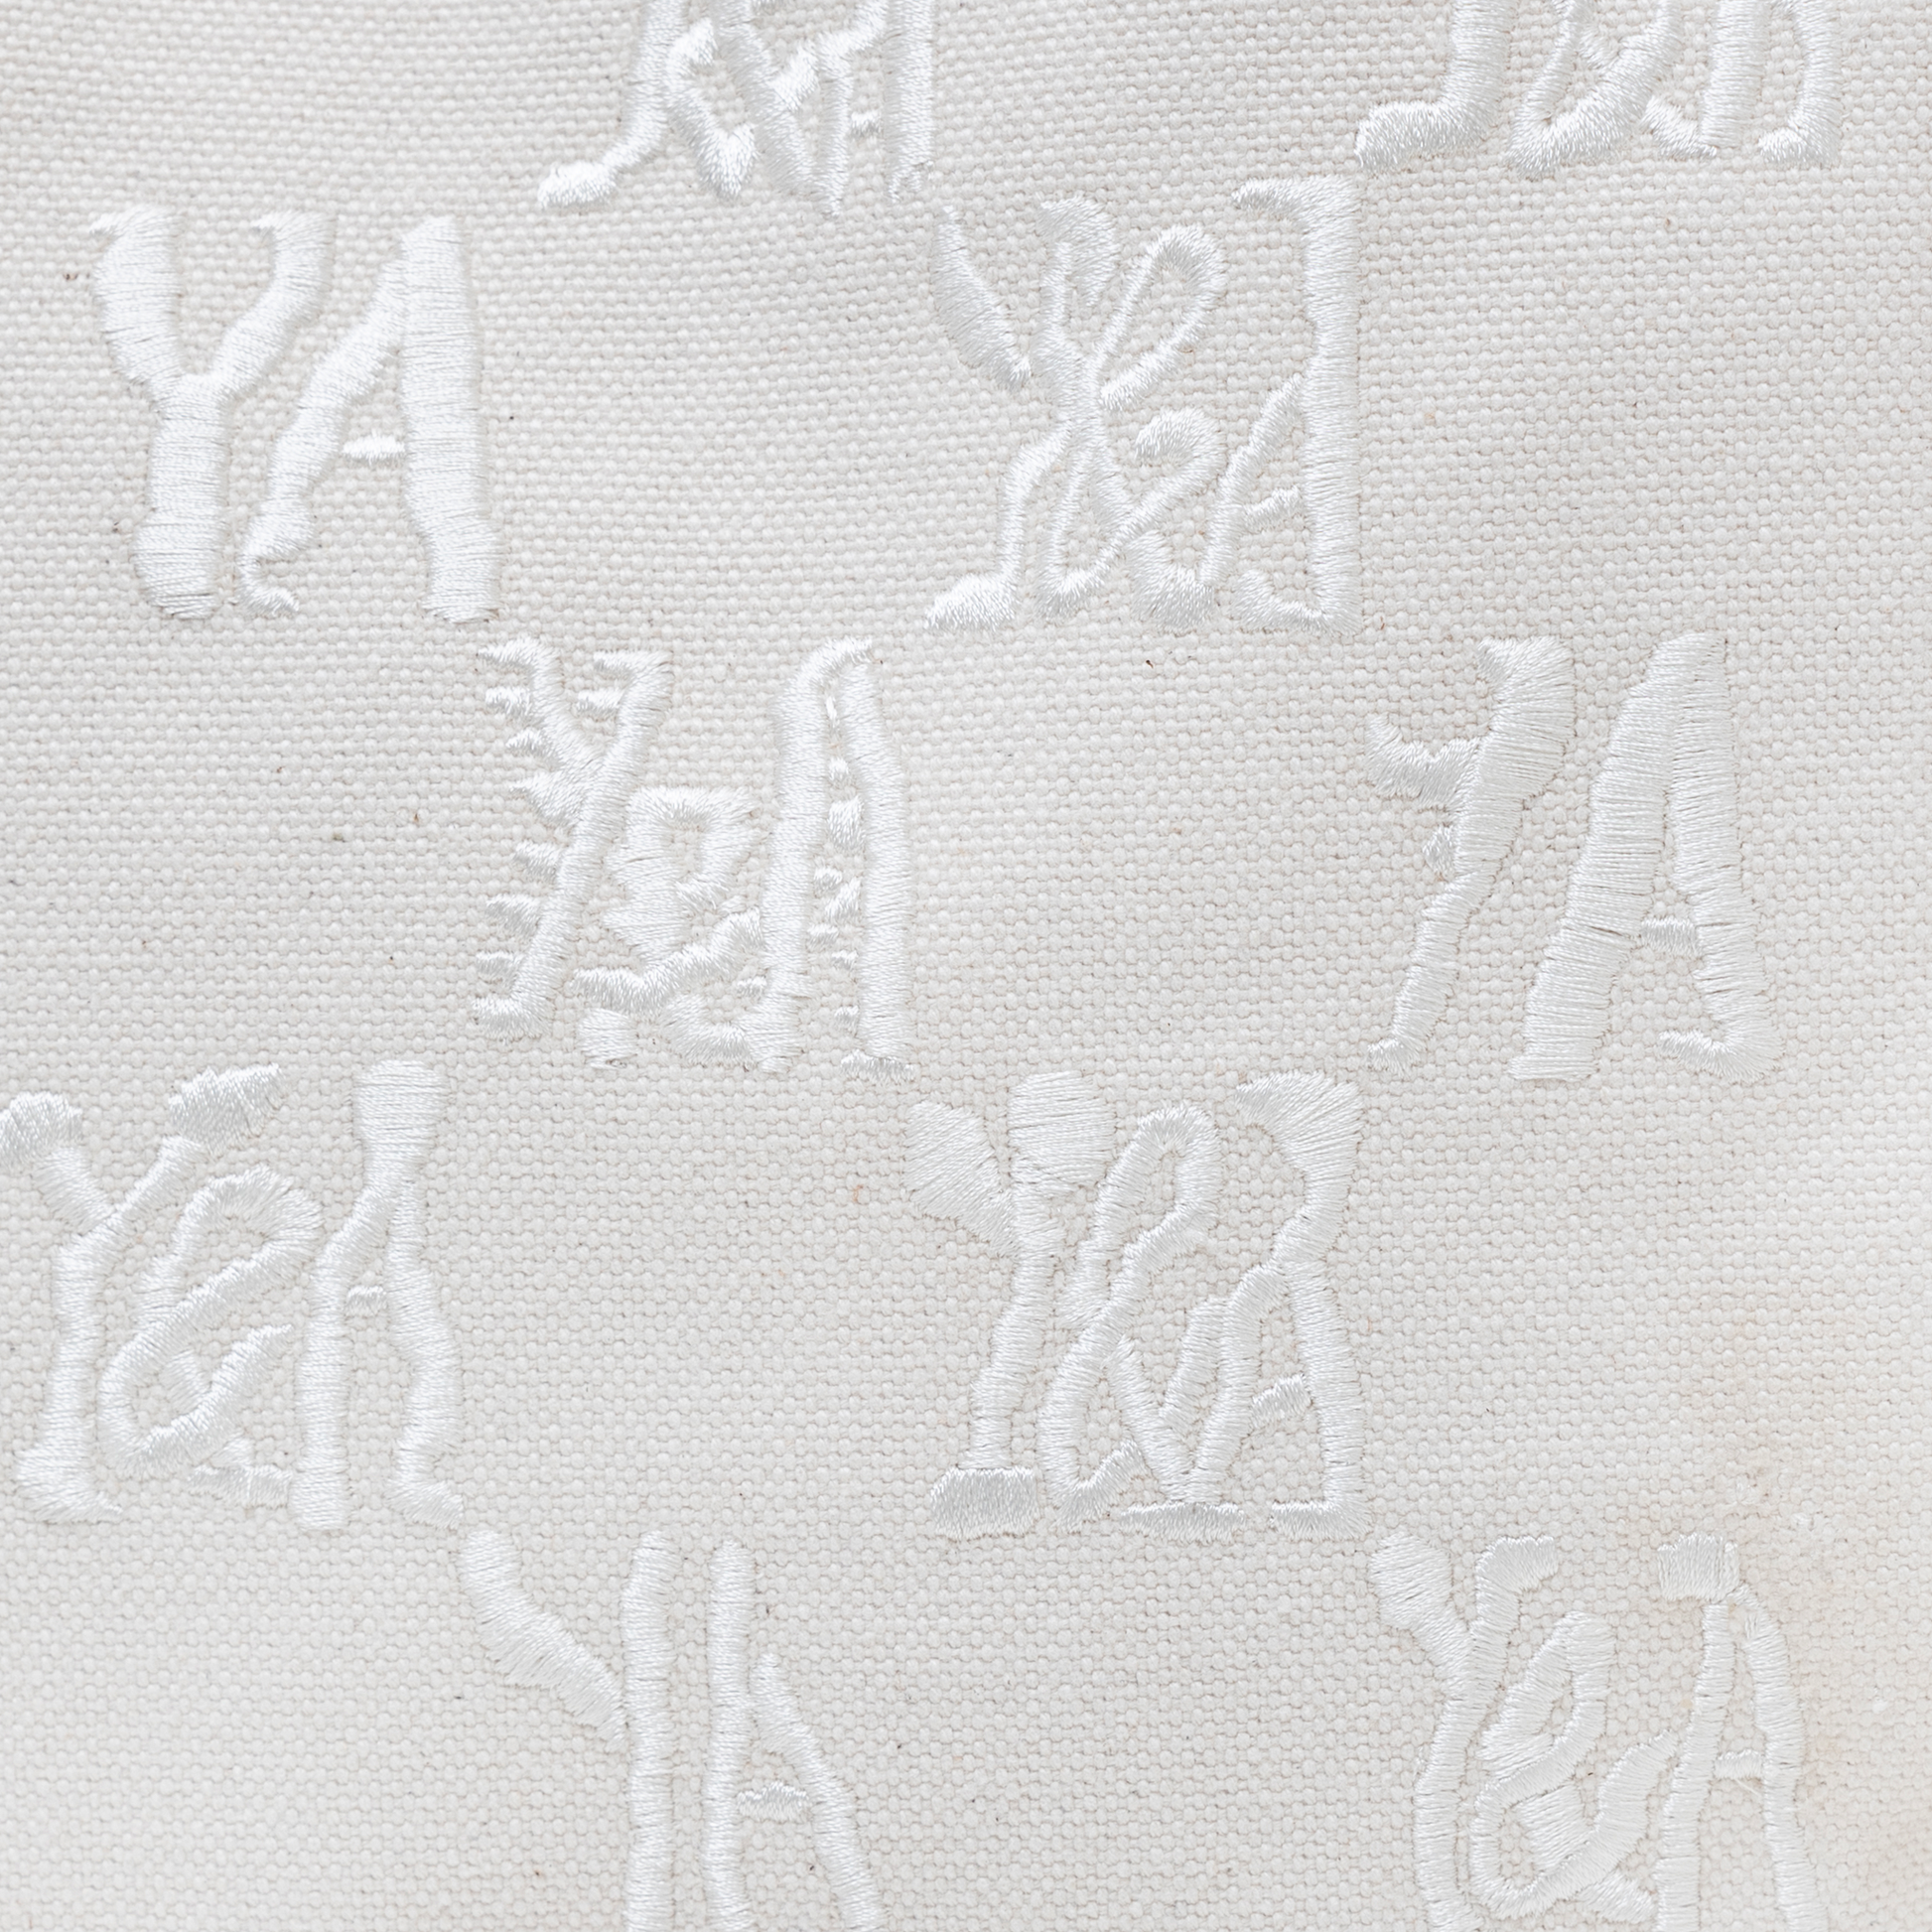 Y&A Y&A
YA Y&A
Y&A YA
Y&A Y&A
YA Y&A